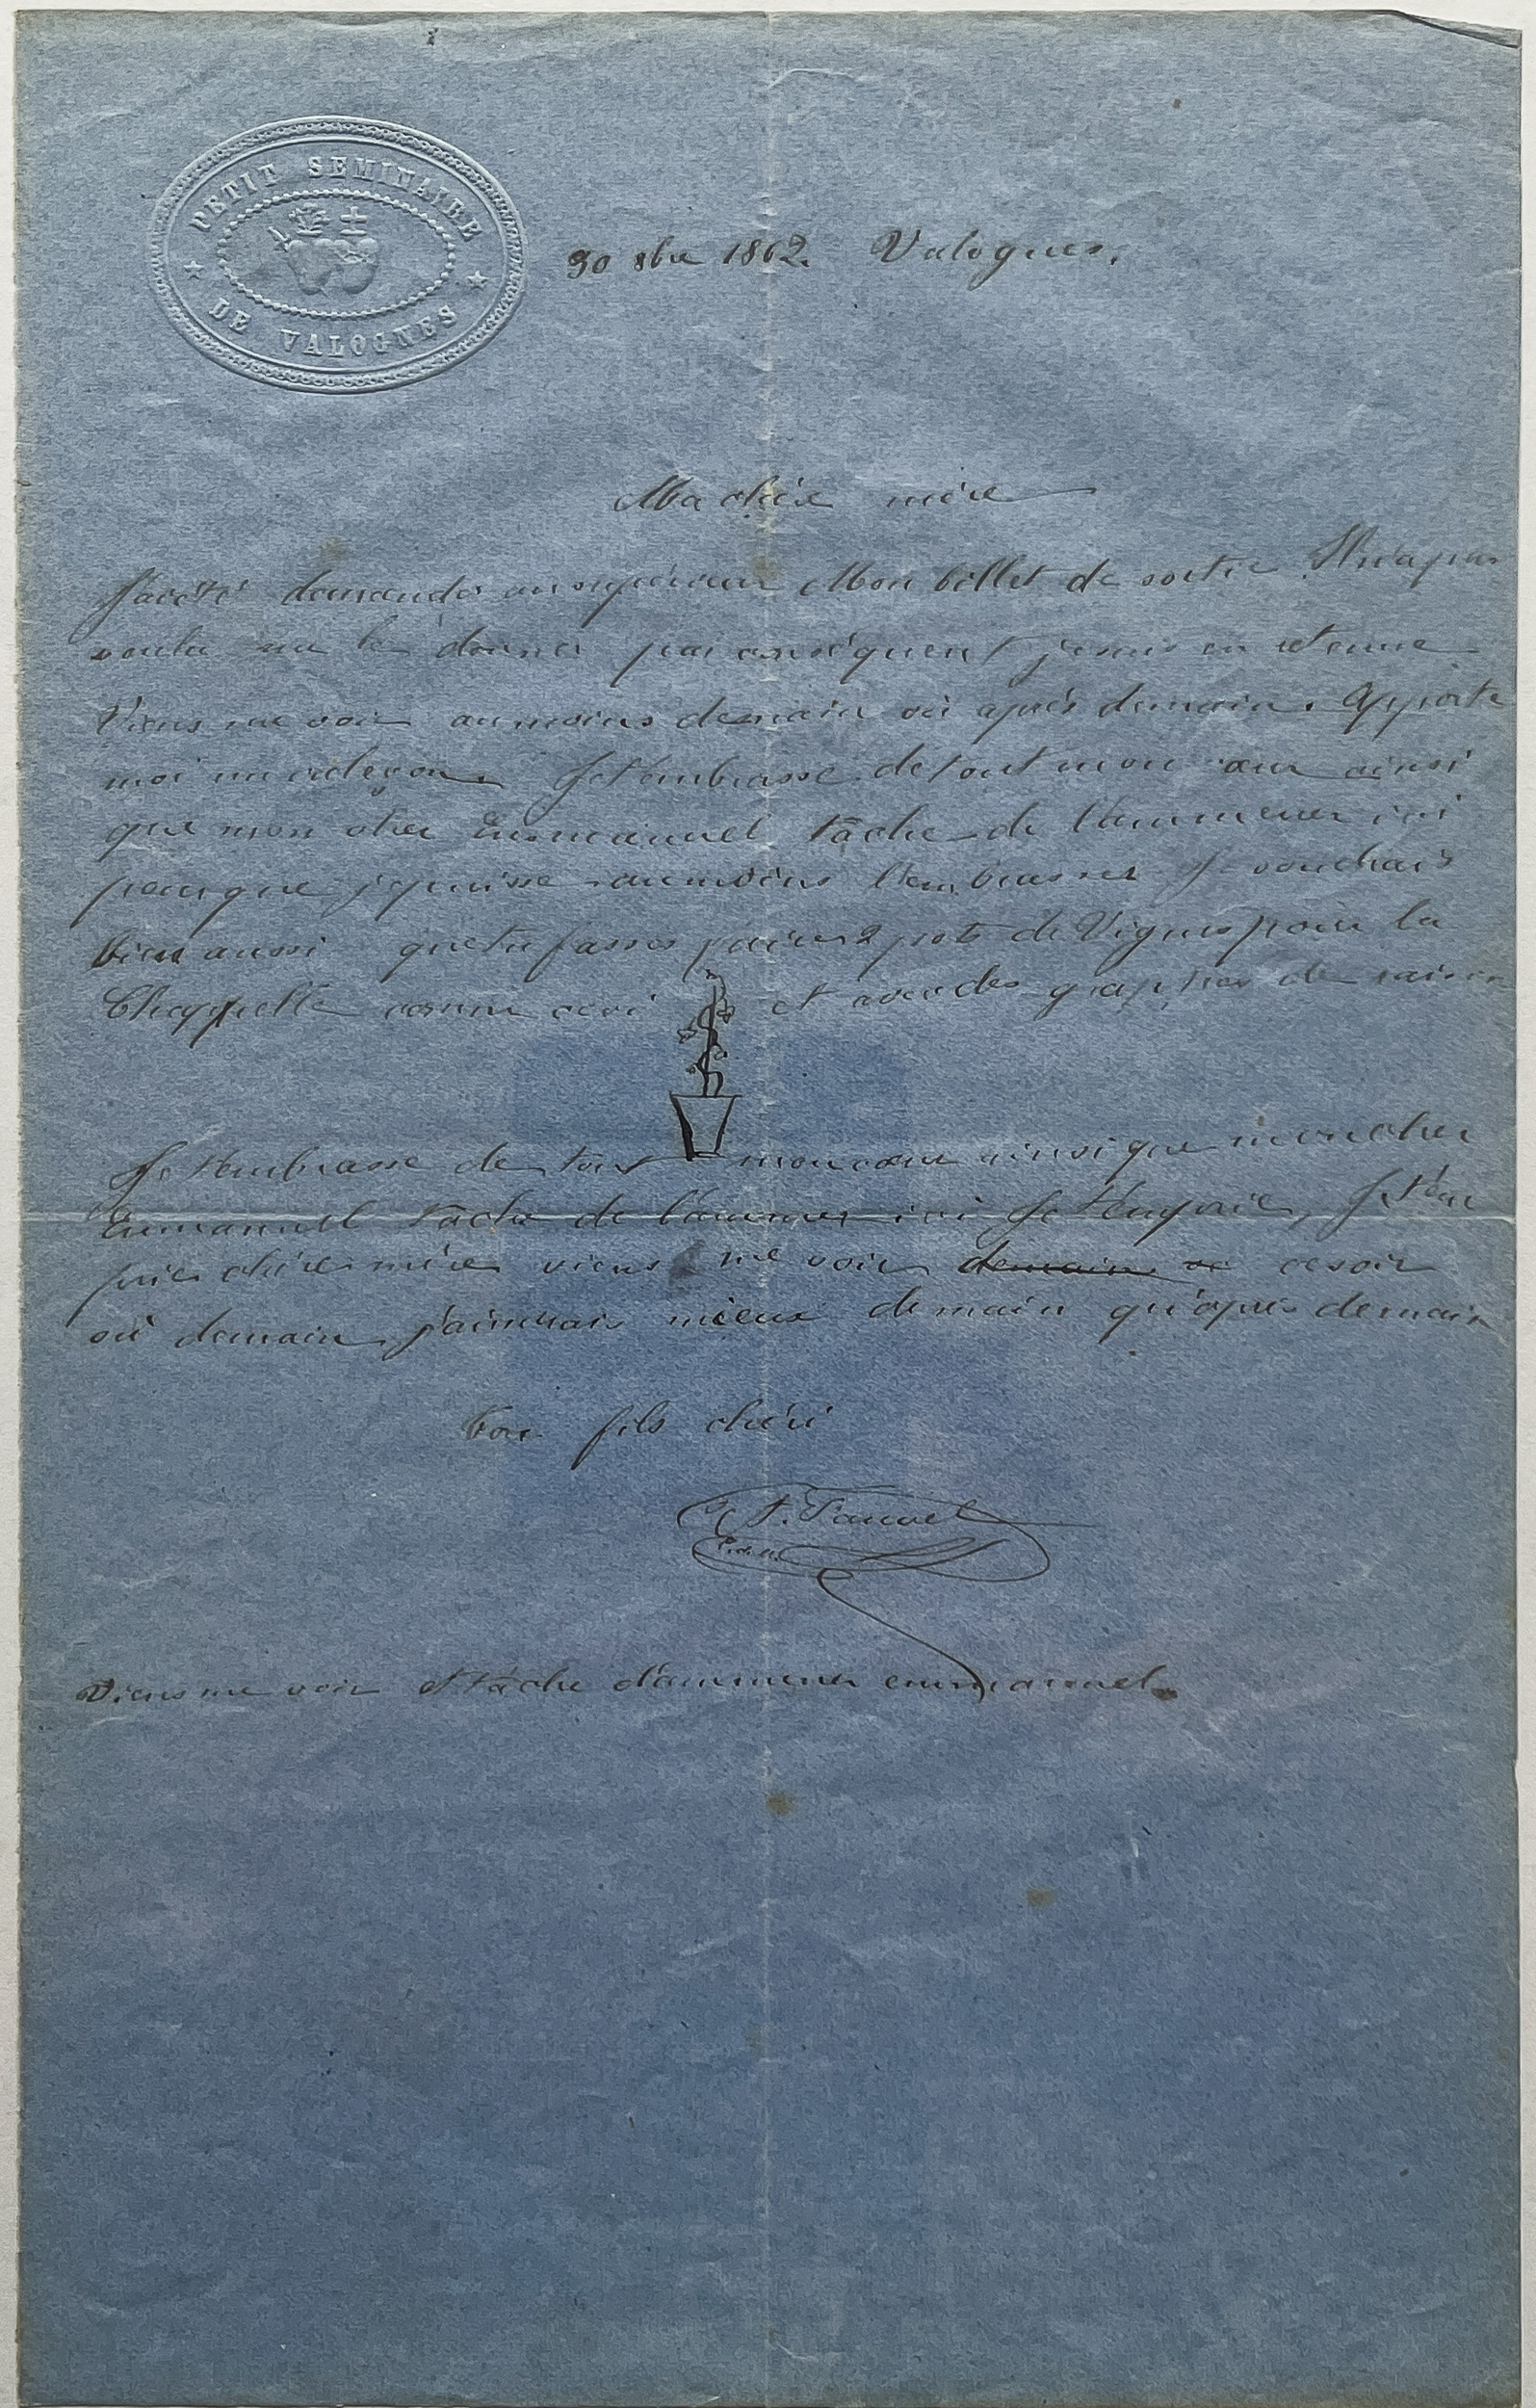 PETIT SEMINAIRE
DE VALOGNES
30 8bre 1862. Valognes.
Ma chère mère
J'ai été demander au supérieur Mon billet de sortie Il n'a pas
voulu me le donner par conséquent je suis en retenue
Viens me voir au moins demain où après demain. Apporte
moi un Je t'embrasse de tout mon cœur ainsi
que mon cher Emmanuel tâche de l'ammener ici
pour que je puisse au moins l'embrasser Je voudrais
bien aussi que tu fasses faire 2 pots de Vignes pour la
Chappelle comme ceci et avec des grappes de raisin
Je t'embrasse de tout mon cœur ainsi que mon cher
Emmanuel tâche de l'ammener ici Je t'en prie, Je t'en
prie chère mère viens me voir demain ce soir
où demain j'aimerais mieux demain qu'après demain
Ton fils chéri
A. Fauvel
Viens me voir et tâche d'ammener emmanuel.